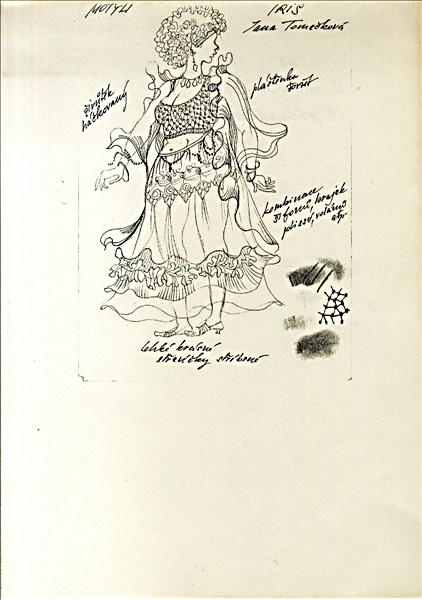 MOTÝLI
IRIS
Jana Tomečková
živůtek
háčkovaný
pláštěnka
kombinace
forem, krajek
plissé, volánů
atp.
lehké krásné
střevíčky stříbrné